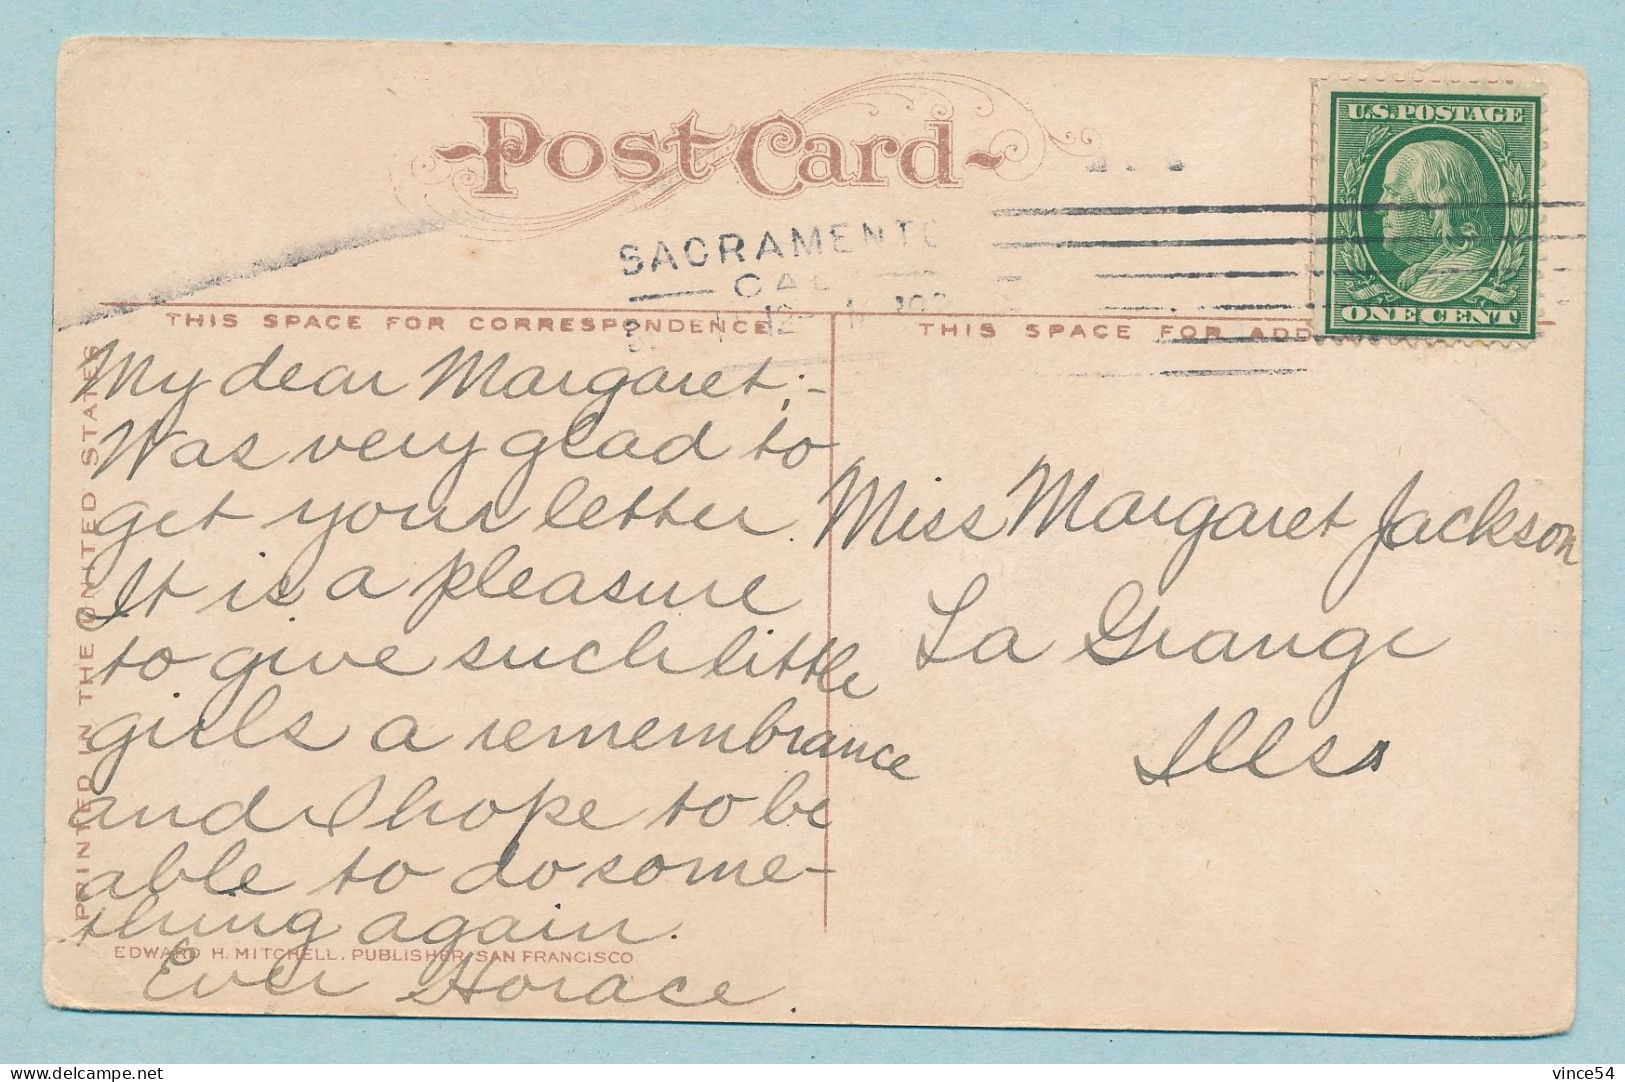 Post Card
U.S. POSTAGE
ONE CENT
SACRAMENTO
CAL
THIS SPACE FOR CORRESPONDENCE
THIS SPACE FOR ADD
PRINTED IN THE UNITED STATES
My dear Margaret;-
Was very glad to
get your letter.
It is a pleasure
to give such little
girls a remembrance
and I hope to be
able to do some-
thing again.
Ever Horace.
EDWARD H. MITCHELL, PUBLISHER, SAN FRANCISCO
Miss Margaret Jackson
La Grange
Ills.
vince54